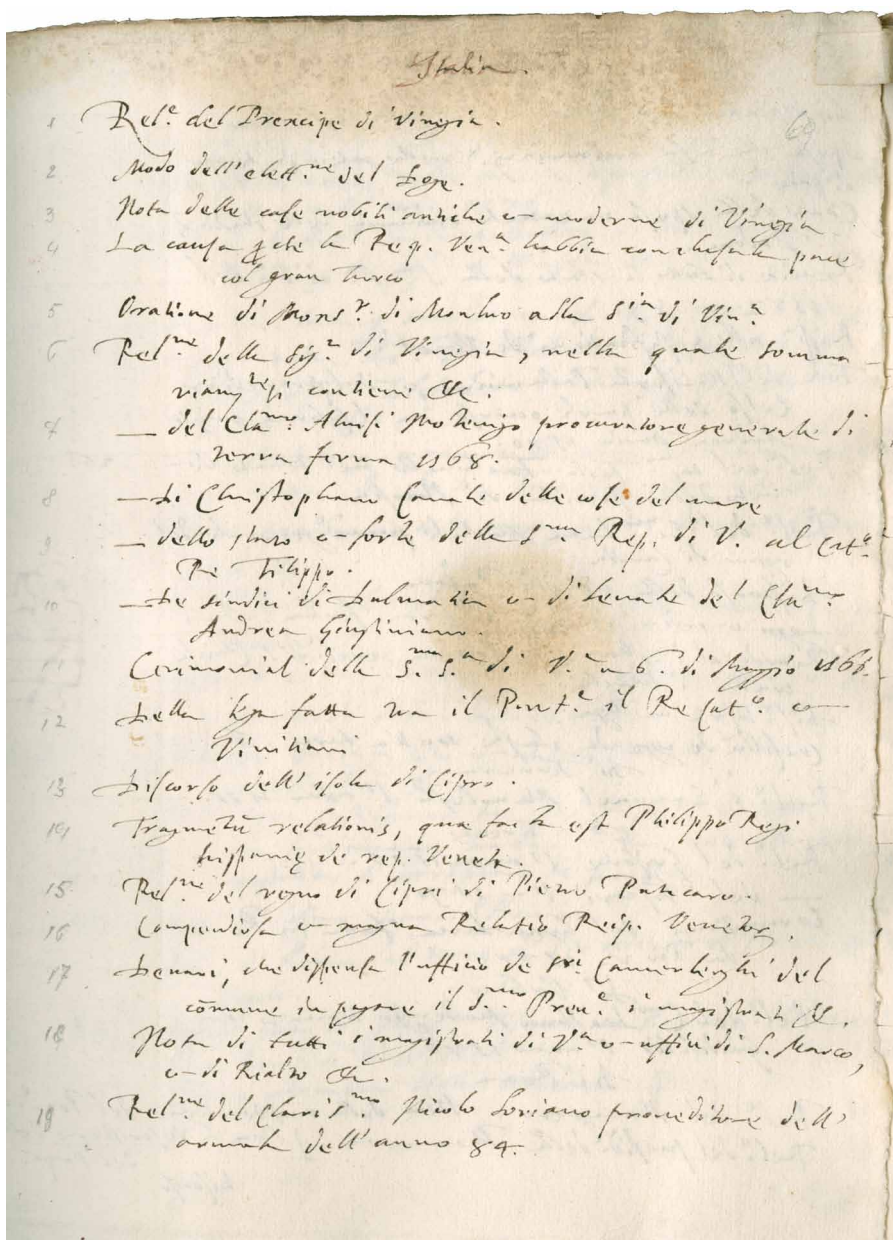 Italia.
69
1 Rel.e del Prencipe di Vinegia.
2 Modo dell'elett.ne del Doge.
3 Nota delle case nobili antiche et moderne di Vinegia
4 La causa ꝑ che la Rep. Ven.a habbia conchiusa la pace
col gran Turco
5 Oratione di Mons.r di Monluc alla S.ia di Vin.a
6 Rel.ne della Sig.a di Vinegia, nella quale somma
riam.te si contiene &c.
7 — del Cla.mo Aluisi Mocenigo procuratore generale di
terra ferma 1568.
8 — Di Christophano Canale delle cose del mare
9 — dello stato et forze della S.ma Rep. di V. al Cat.co
Re Filippo.
10 — De sindici di Dalmatia et di Levante del Cla.mo
Andrea Giustiniano.
11 Cerimonial della S.ma S.a di V.a a 6. di Maggio 1566.
12 Della lega fatta tra il Pont.e il Re Cat.co et
Vinitiani
13 Discorso dell' isola di Cipro.
14 Fragmētū relationis, quæ facta est Philippo Regi
hispanię de rep. Veneta.
15 Rel.ne del regno di Cipri di
16 Compendiosa et magna Relatio Reip. Venetor.
17 Denari, che dispensa l'ufficio de Sri. Camerlenghi del
cōmune in pagare il S.mo Pren.e i magistrati &c.
18 Nota di tutti i magistrati di V.a et uffici di S. Marco,
et di Rialto &c.
19 Rel.ne del Claris.mo Nicolo Soriano proveditore dell'
armata dell'anno 84.